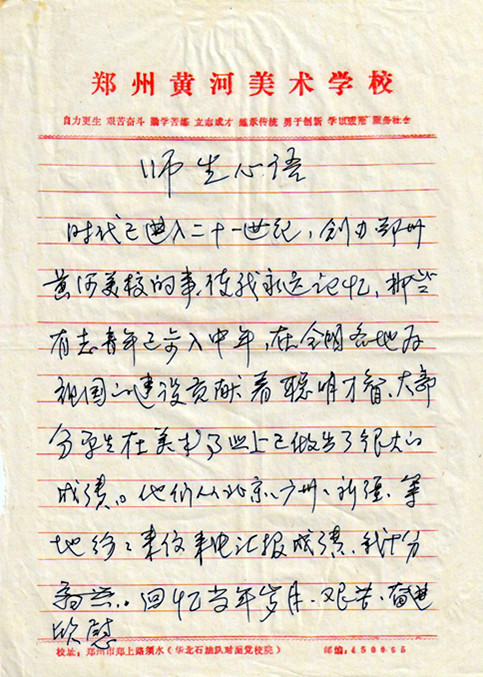 郑州黄河美术学校
自力更生 艰苦奋斗 勤学苦练 立志成才 继承传统 勇于创新 学以致用 服务社会
师生心语
时代已进入二十一世纪，创办郑州
黄河美校的事，使我永远记忆，那些
有志青年已步入中年，在全国各地为
祖国的建设贡献着聪明才智、大部
分学生在美术事业上已做出了很大的
成绩。他们从北京、广州、新疆、等
地纷纷来信来电汇报成绩，我十分
高兴。回忆当年岁月、艰苦、奋进
欣慰
校址：郑州市郑上路须水（华北石油队对面党校院）
邮编：450065